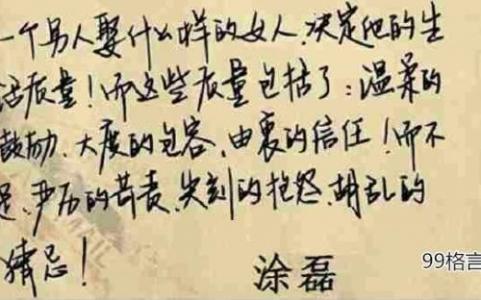 一个男人娶什么样的女人,决定他的生
活质量!而这些质量包括了:温柔的
鼓励、大度的包容、由衷的信任!而不
是,严厉的苛责,尖刻的抱怨,胡乱的
猜忌!
涂磊
99格言